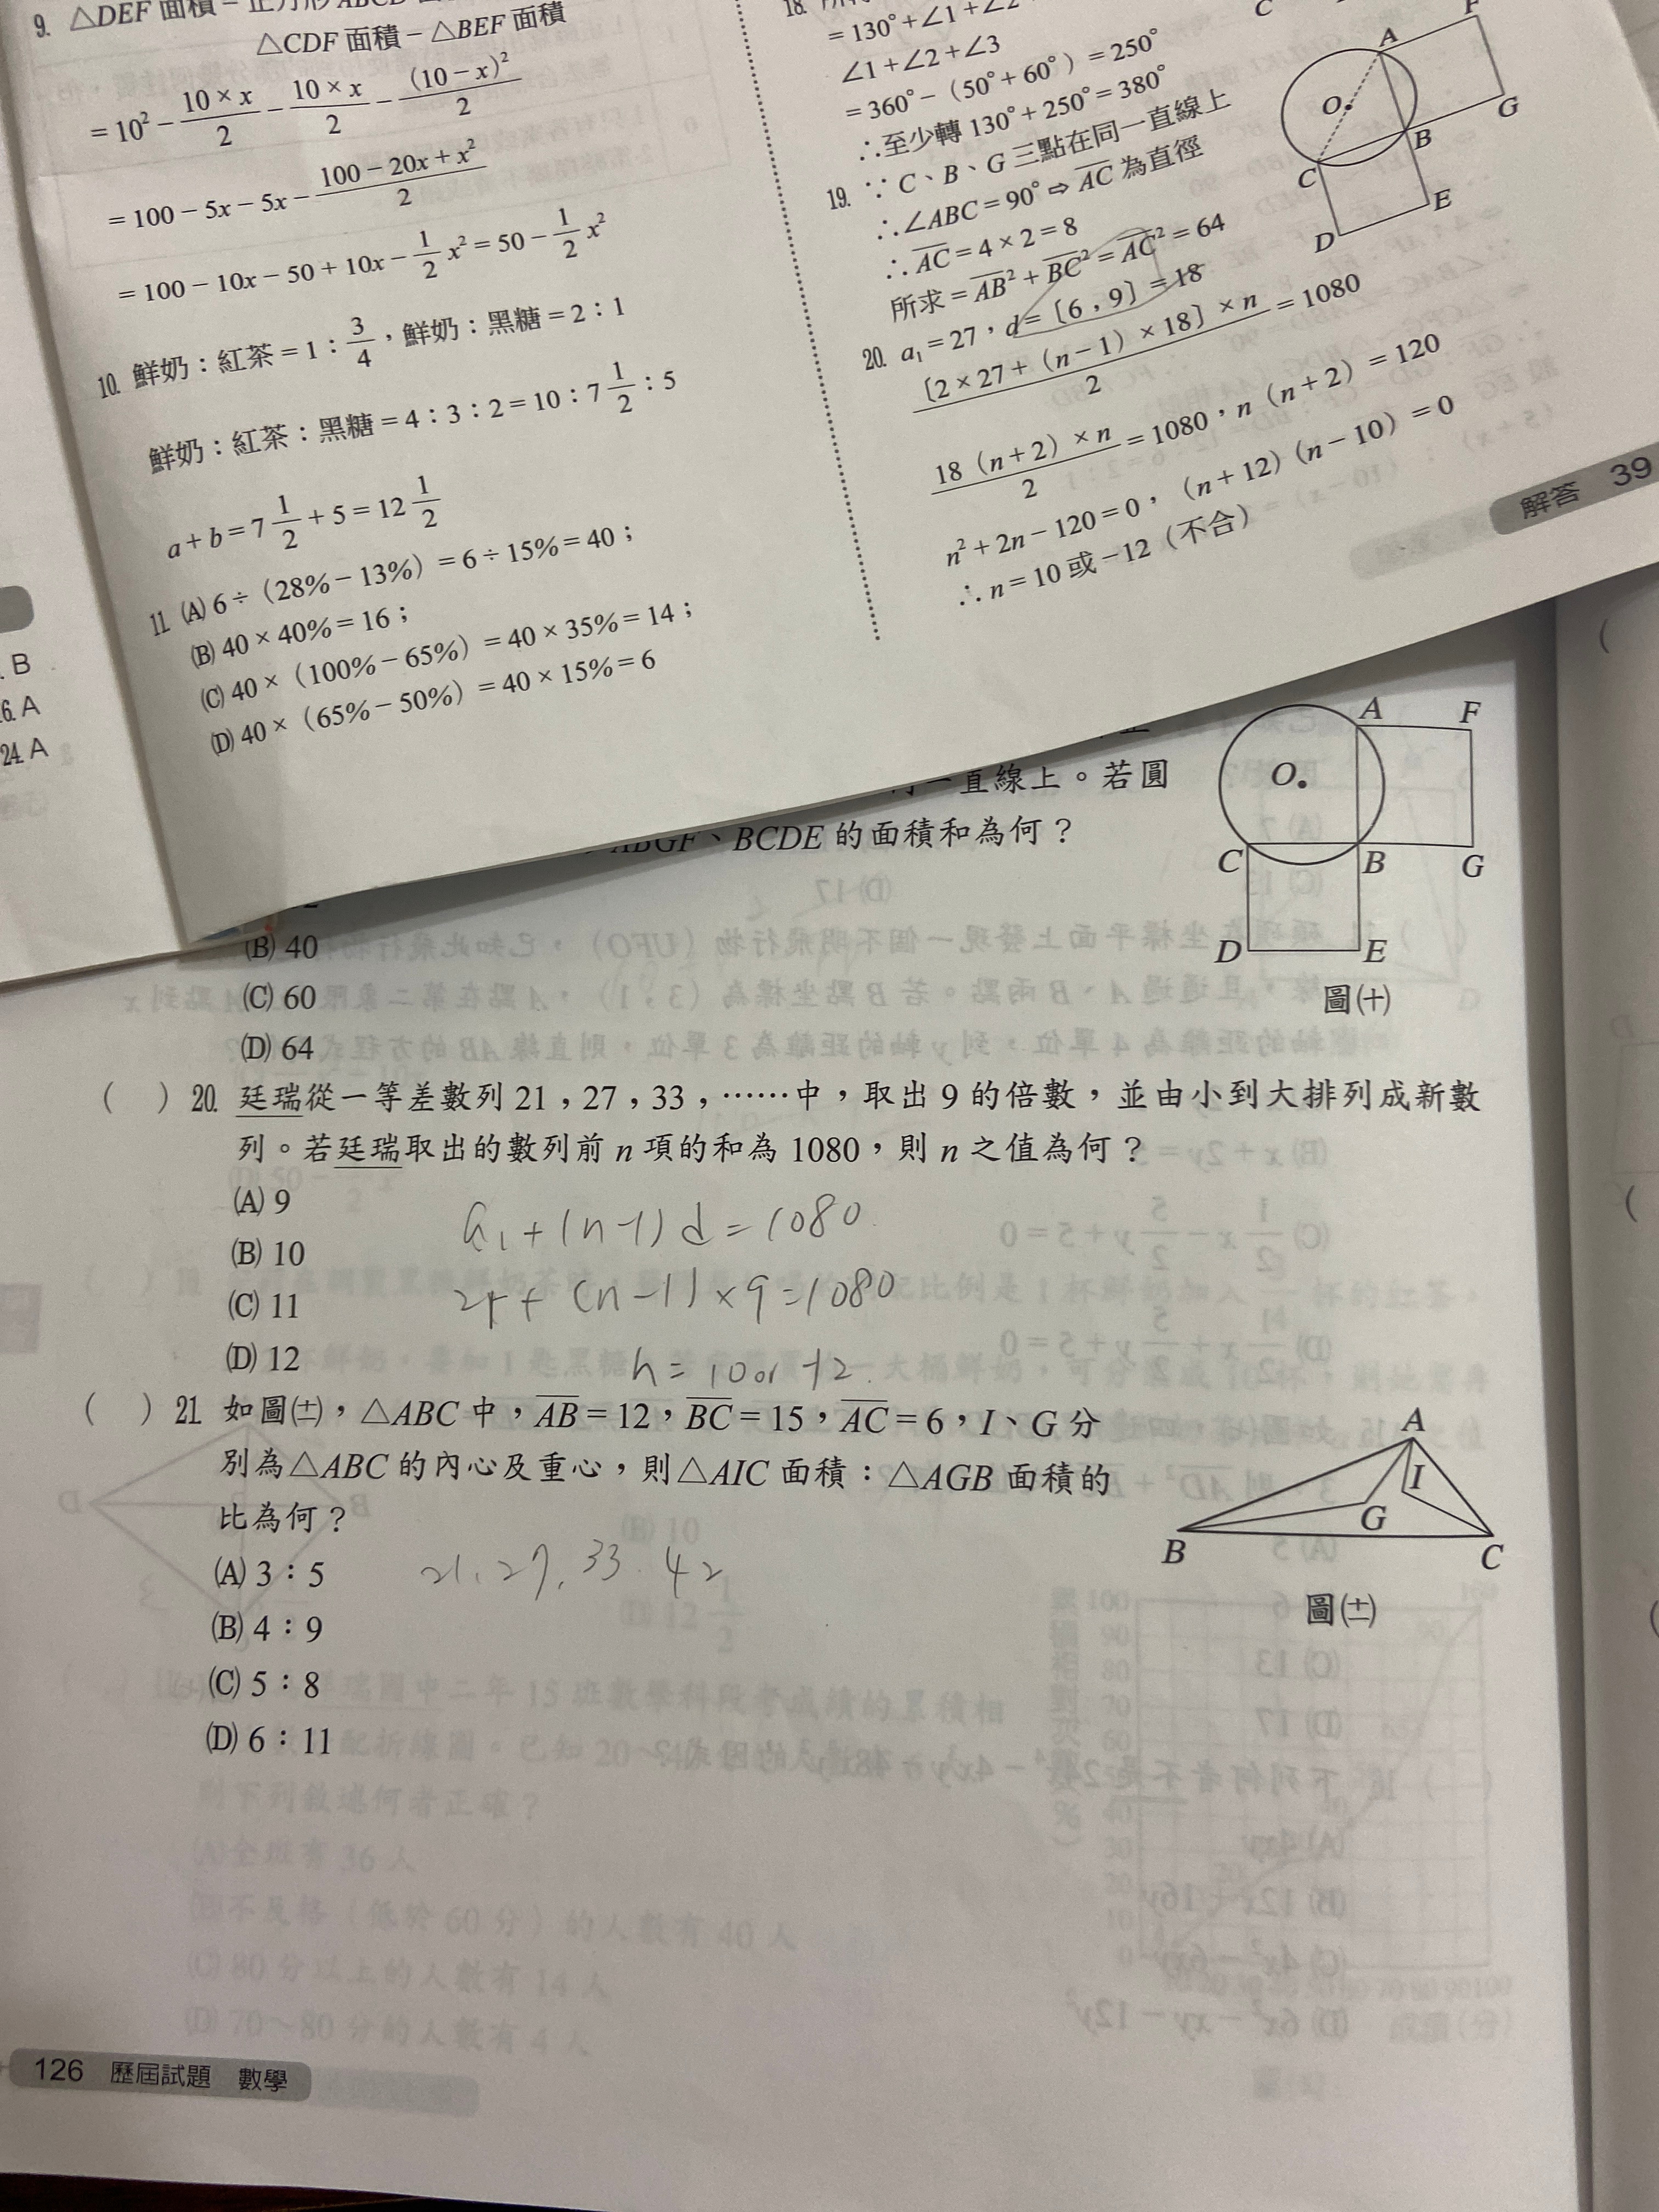 9. △DEF 面積 = 正方形 ABCD
△CDF 面積 − △BEF 面積
= 10² − (10 × x)/2 − (10 × x)/2 − (10 − x)²/2
= 100 − 5x − 5x − (100 − 20x + x²)/2
= 100 − 10x − 50 + 10x − 1/2 x² = 50 − 1/2 x²
10. 鮮奶：紅茶 = 1：3/4，鮮奶：黑糖 = 2：1
鮮奶：紅茶：黑糖 = 4：3：2 = 10：7 1/2：5
a + b = 7 1/2 + 5 = 12 1/2
11. (A) 6 ÷（28% − 13%）= 6 ÷ 15% = 40；
(B) 40 × 40% = 16；
(C) 40 ×（100% − 65%）= 40 × 35% = 14；
(D) 40 ×（65% − 50%）= 40 × 15% = 6
. B
6. A
24. A
18.
= 130° + ∠1 + ∠2
∠1 + ∠2 + ∠3
= 360° −（50° + 60°）= 250°
∴至少轉 130° + 250° = 380°
19. ∵ C、B、G 三點在同一直線上
∴∠ABC = 90° ⇨ AC 為直徑
∴ AC = 4 × 2 = 8
所求 = AB² + BC² = AC² = 64
20. a₁ = 27，d = [6，9] = 18
[2 × 27 +（n − 1）× 18] × n / 2 = 1080
18（n + 2）× n / 2 = 1080，n（n + 2）= 120
n² + 2n − 120 = 0，（n + 12）（n − 10）= 0
∴ n = 10 或 −12（不合）
C
A
F
O
G
B
C
E
D
解答 39
一直線上。若圓
ABGF、BCDE 的面積和為何？
(B) 40
(C) 60
(D) 64
A
F
O
C
B
G
D
E
圖(十)
（ ）20. 廷瑞從一等差數列 21，27，33，……中，取出 9 的倍數，並由小到大排列成新數
列。若廷瑞取出的數列前 n 項的和為 1080，則 n 之值為何？
(A) 9
(B) 10
(C) 11
(D) 12
a₁ + (n−1) d = 1080
21 + (n−1) × 9 = 1080
n = 10 or
（ ）21. 如圖(十一)，△ABC 中，AB = 12，BC = 15，AC = 6，I、G 分
別為△ABC 的內心及重心，則△AIC 面積：△AGB 面積的
比為何？
(A) 3：5
(B) 4：9
(C) 5：8
(D) 6：11
21, 27, 33. 42
A
I
G
B
C
圖(十一)
126 歷屆試題 數學